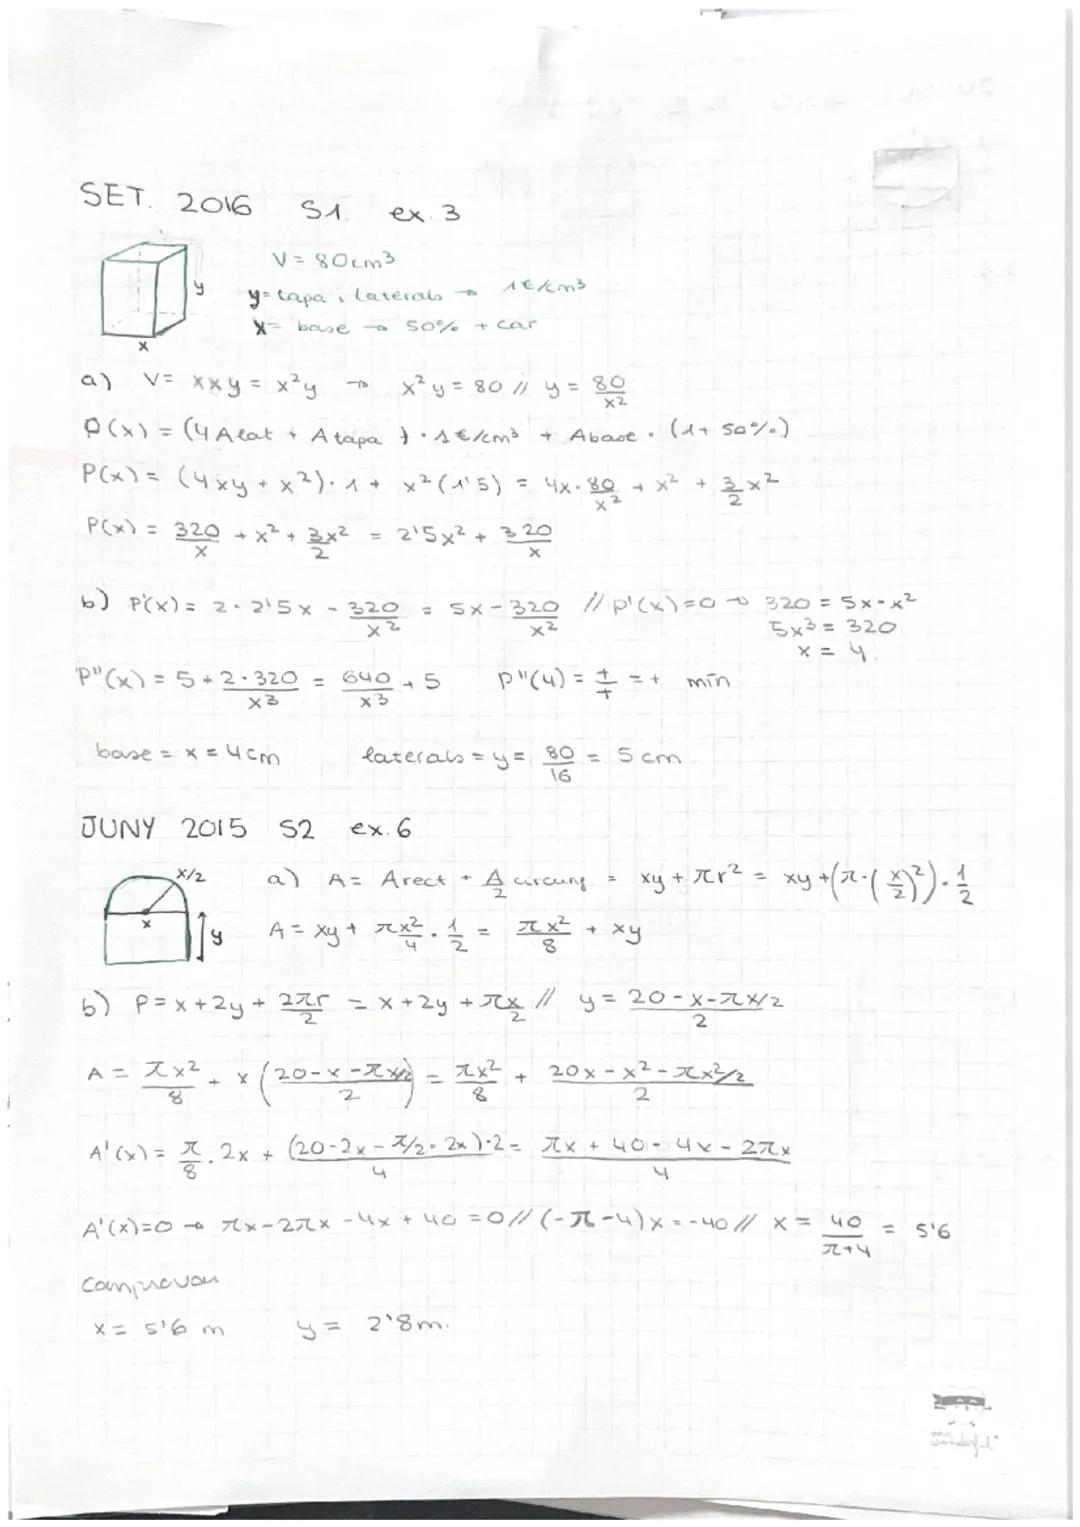 SET. 2016 S1. ex. 3
V = 80cm³
y
y= tapa i laterals → 1€/cm³
x= base → 50% + car
x
a) V= xxy = x²y → x²y = 80 // y = 80/x²
P(x) = (4 Alat + A tapa) · 1€/cm³ + Abase · (1+ 50%)
P(x) = (4xy + x²) · 1 + x²(1'5) = 4x · 80/x² + x² + 3/2 x²
P(x) = 320/x + x² + 3x²/2 = 2'5x² + 320/x
b) P'(x) = 2 · 2'5x - 320/x² = 5x - 320/x² // P'(x)=0 → 320 = 5x·x²
5x³ = 320
x = 4.
P"(x) = 5 + 2·320/x³ = 640/x³ + 5 P"(4) = +/+ = + mín
base = x = 4cm laterals = y = 80/16 = 5cm.
JUNY 2015 S2 ex. 6
x/2
x
y
a) A= Arect + A circump/2 = xy + πr² = xy + (π·(x/2)²)·1/2
A = xy + πx²/4 · 1/2 = πx²/8 + xy
b) P= x+2y + 2πr/2 = x+2y + πx/2 // y = 20-x-πx/2 / 2
A = πx²/8 + x (20-x-πx/2 / 2) = πx²/8 + 20x - x² - πx²/2 / 2
A'(x) = π/8 · 2x + (20-2x-π/2·2x)·2 / 4 = πx + 40 - 4x - 2πx / 4
A'(x)=0 → πx-2πx-4x+40 =0 // (-π-4)x = -40 // x = 40/π+4 = 5'6
Comprovar
x= 5'6 m y= 2'8m.